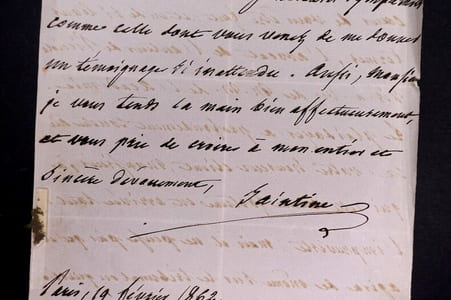 comme celle dont vous venez de me donner
un témoignage si inattendu. Aussi, Monsieur
je vous tends la main bien affectueusement,
et vous prie de croire à mon entier et
sincère dévouement,
Saintine
Paris, 19 février 1862